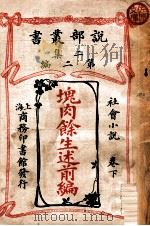 說部叢書
二集
第二編
社會小說 卷下
塊肉餘生述前編
上海商務印書館發行